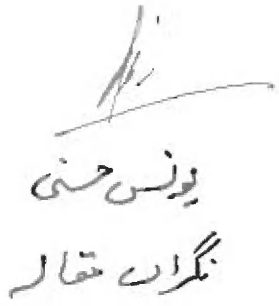 یونس حسنی
نگراں مقالہ